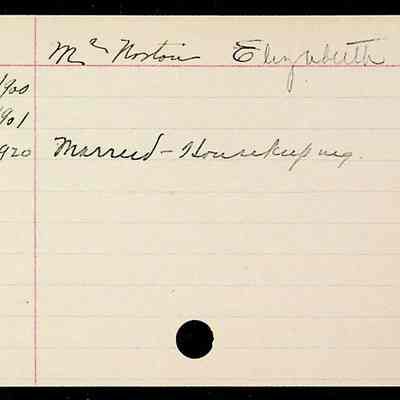 Mc Norton Elizabeth
1900
1901
1920 Married - Housekeeping.